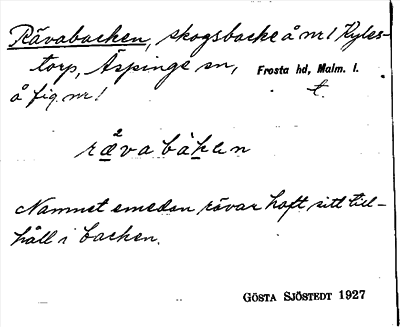 Rävabacken, skogsbacke å nr 1 Kyles-
torp, Äspinge sn, Frosta hd, Malm. l.
å fig. nr 1 t.
rævabàken
Namnet emedan rävar haft sitt till-
håll i backen.
GÖSTA SJÖSTEDT 1927